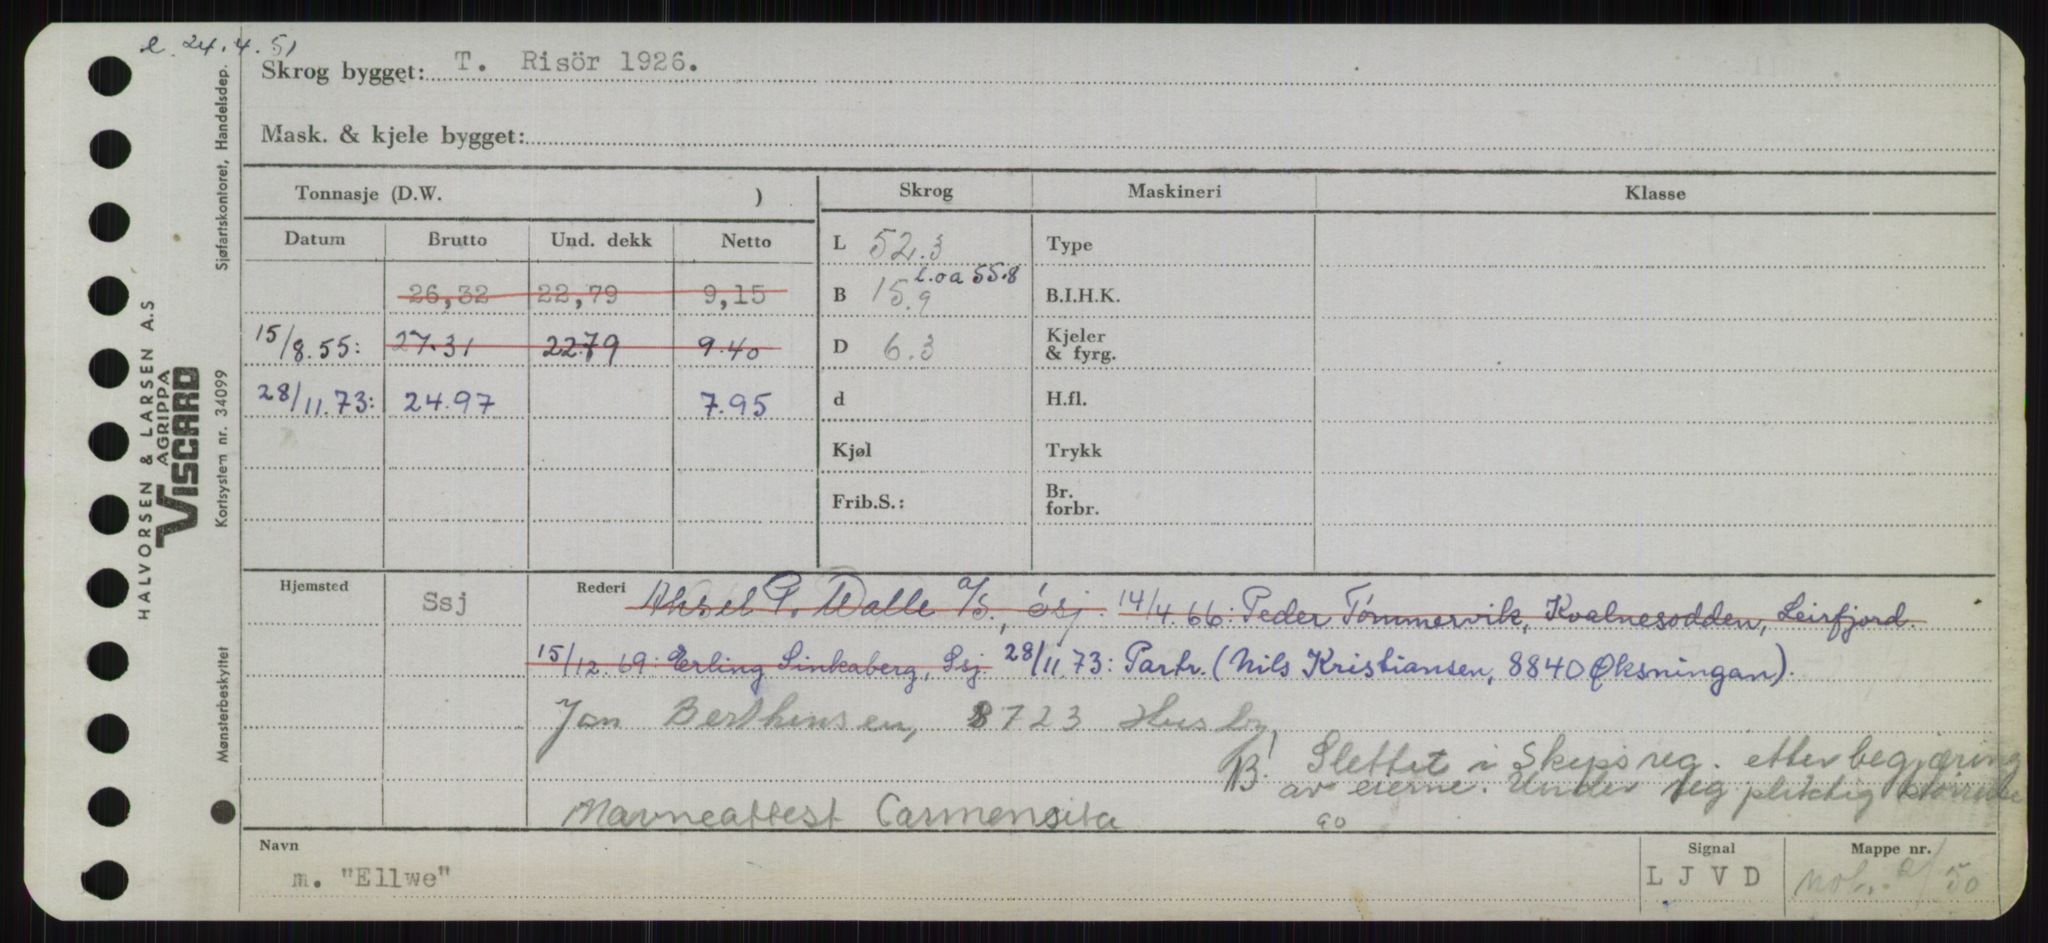 e 24.4.51
Skrog bygget: T. Risör 1926.
Mask. & kjele bygget:
Tonnasje (D.W. )
Skrog
Maskineri
Klasse
Datum Brutto Und. dekk Netto
26,32 22,79 9,15
15/8.55: 27.31 22.79 9.40
28/11.73: 24.97 7.95
L 52.3
l.oa 55.8
B 15.9
D 6.3
d
Kjøl
Frib.S.:
Type
B.I.H.K.
Kjeler
& fyrg.
H.fl.
Trykk
Br.
forbr.
Hjemsted Ssj
Rederi Aksel P. Walle a/s., Ssj. 14/4.66: Peder Tømmervik, Kvalnesodden, Leirfjord.
15/12.69: Erling Sinkaberg, Ssj. 28/11.73: Partr. (Nils Kristiansen, 8840 Øksningan).
Jan Berthinsen, 8723 Husby
B! Slettet i Skipsreg. etter begjæring
av eierne. Under reg pliktig størrelse
90
Navneattest Carmensita
Navn
m. "Ellwe"
Signal
L J V D
Mappe nr.
2/50
HALVORSEN & LARSEN A.S
AGRIPPA
VISCARD
Mønsterbeskyttet Kortsystem nr. 34099 Sjøfartskontoret, Handelsdep.